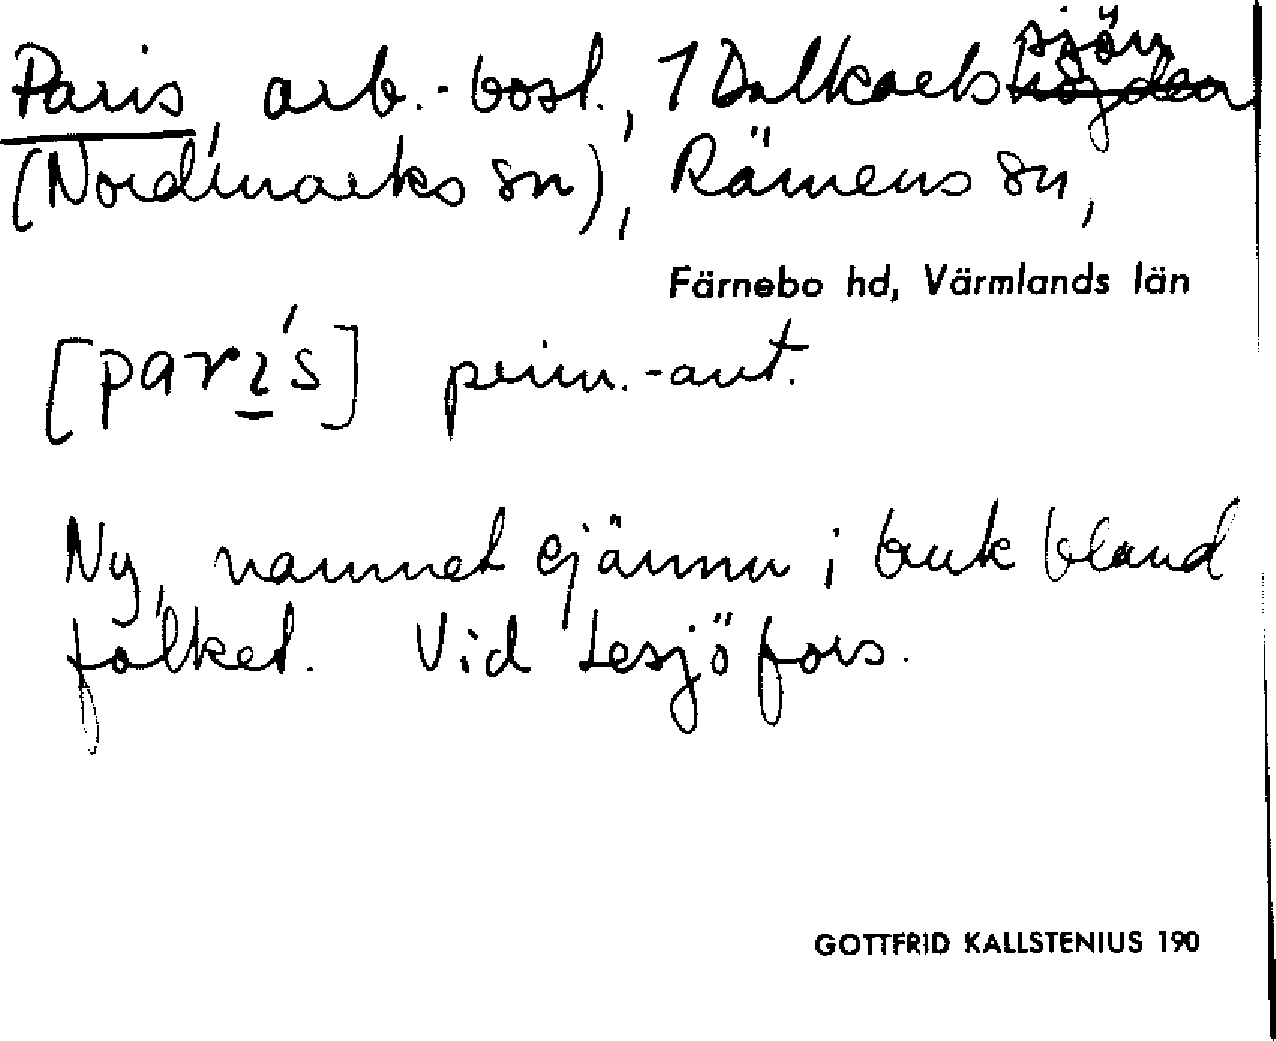 Paris, arb.-bost., 1 Dalkarlssjön
(Nordmarks sn), Rämens sn,
Färnebo hd, Värmlands län
[parı́s] prim.-ant.
Ny, namnet ejännu i bruk bland
folket. Vid Lesjöfors.
GOTTFRID KALLSTENIUS 190